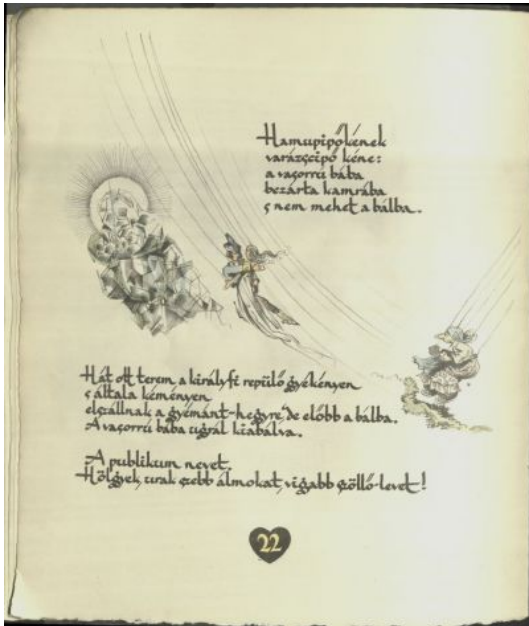 Hamupipőkének
varázscipő kéne:
a vasorrú bába
bezárta kamrába
s nem mehet a bálba.
Hát ott terem a királyfi repülő gyékényen
s általa kéményen
elszállnak a gyémánt-hegyre, de előbb a bálba.
A vasorrú bába ugrál kiabálva.
A publikum nevet.
Hölgyek, urak szebb álmokat, vígabb szőllő-levet!
22